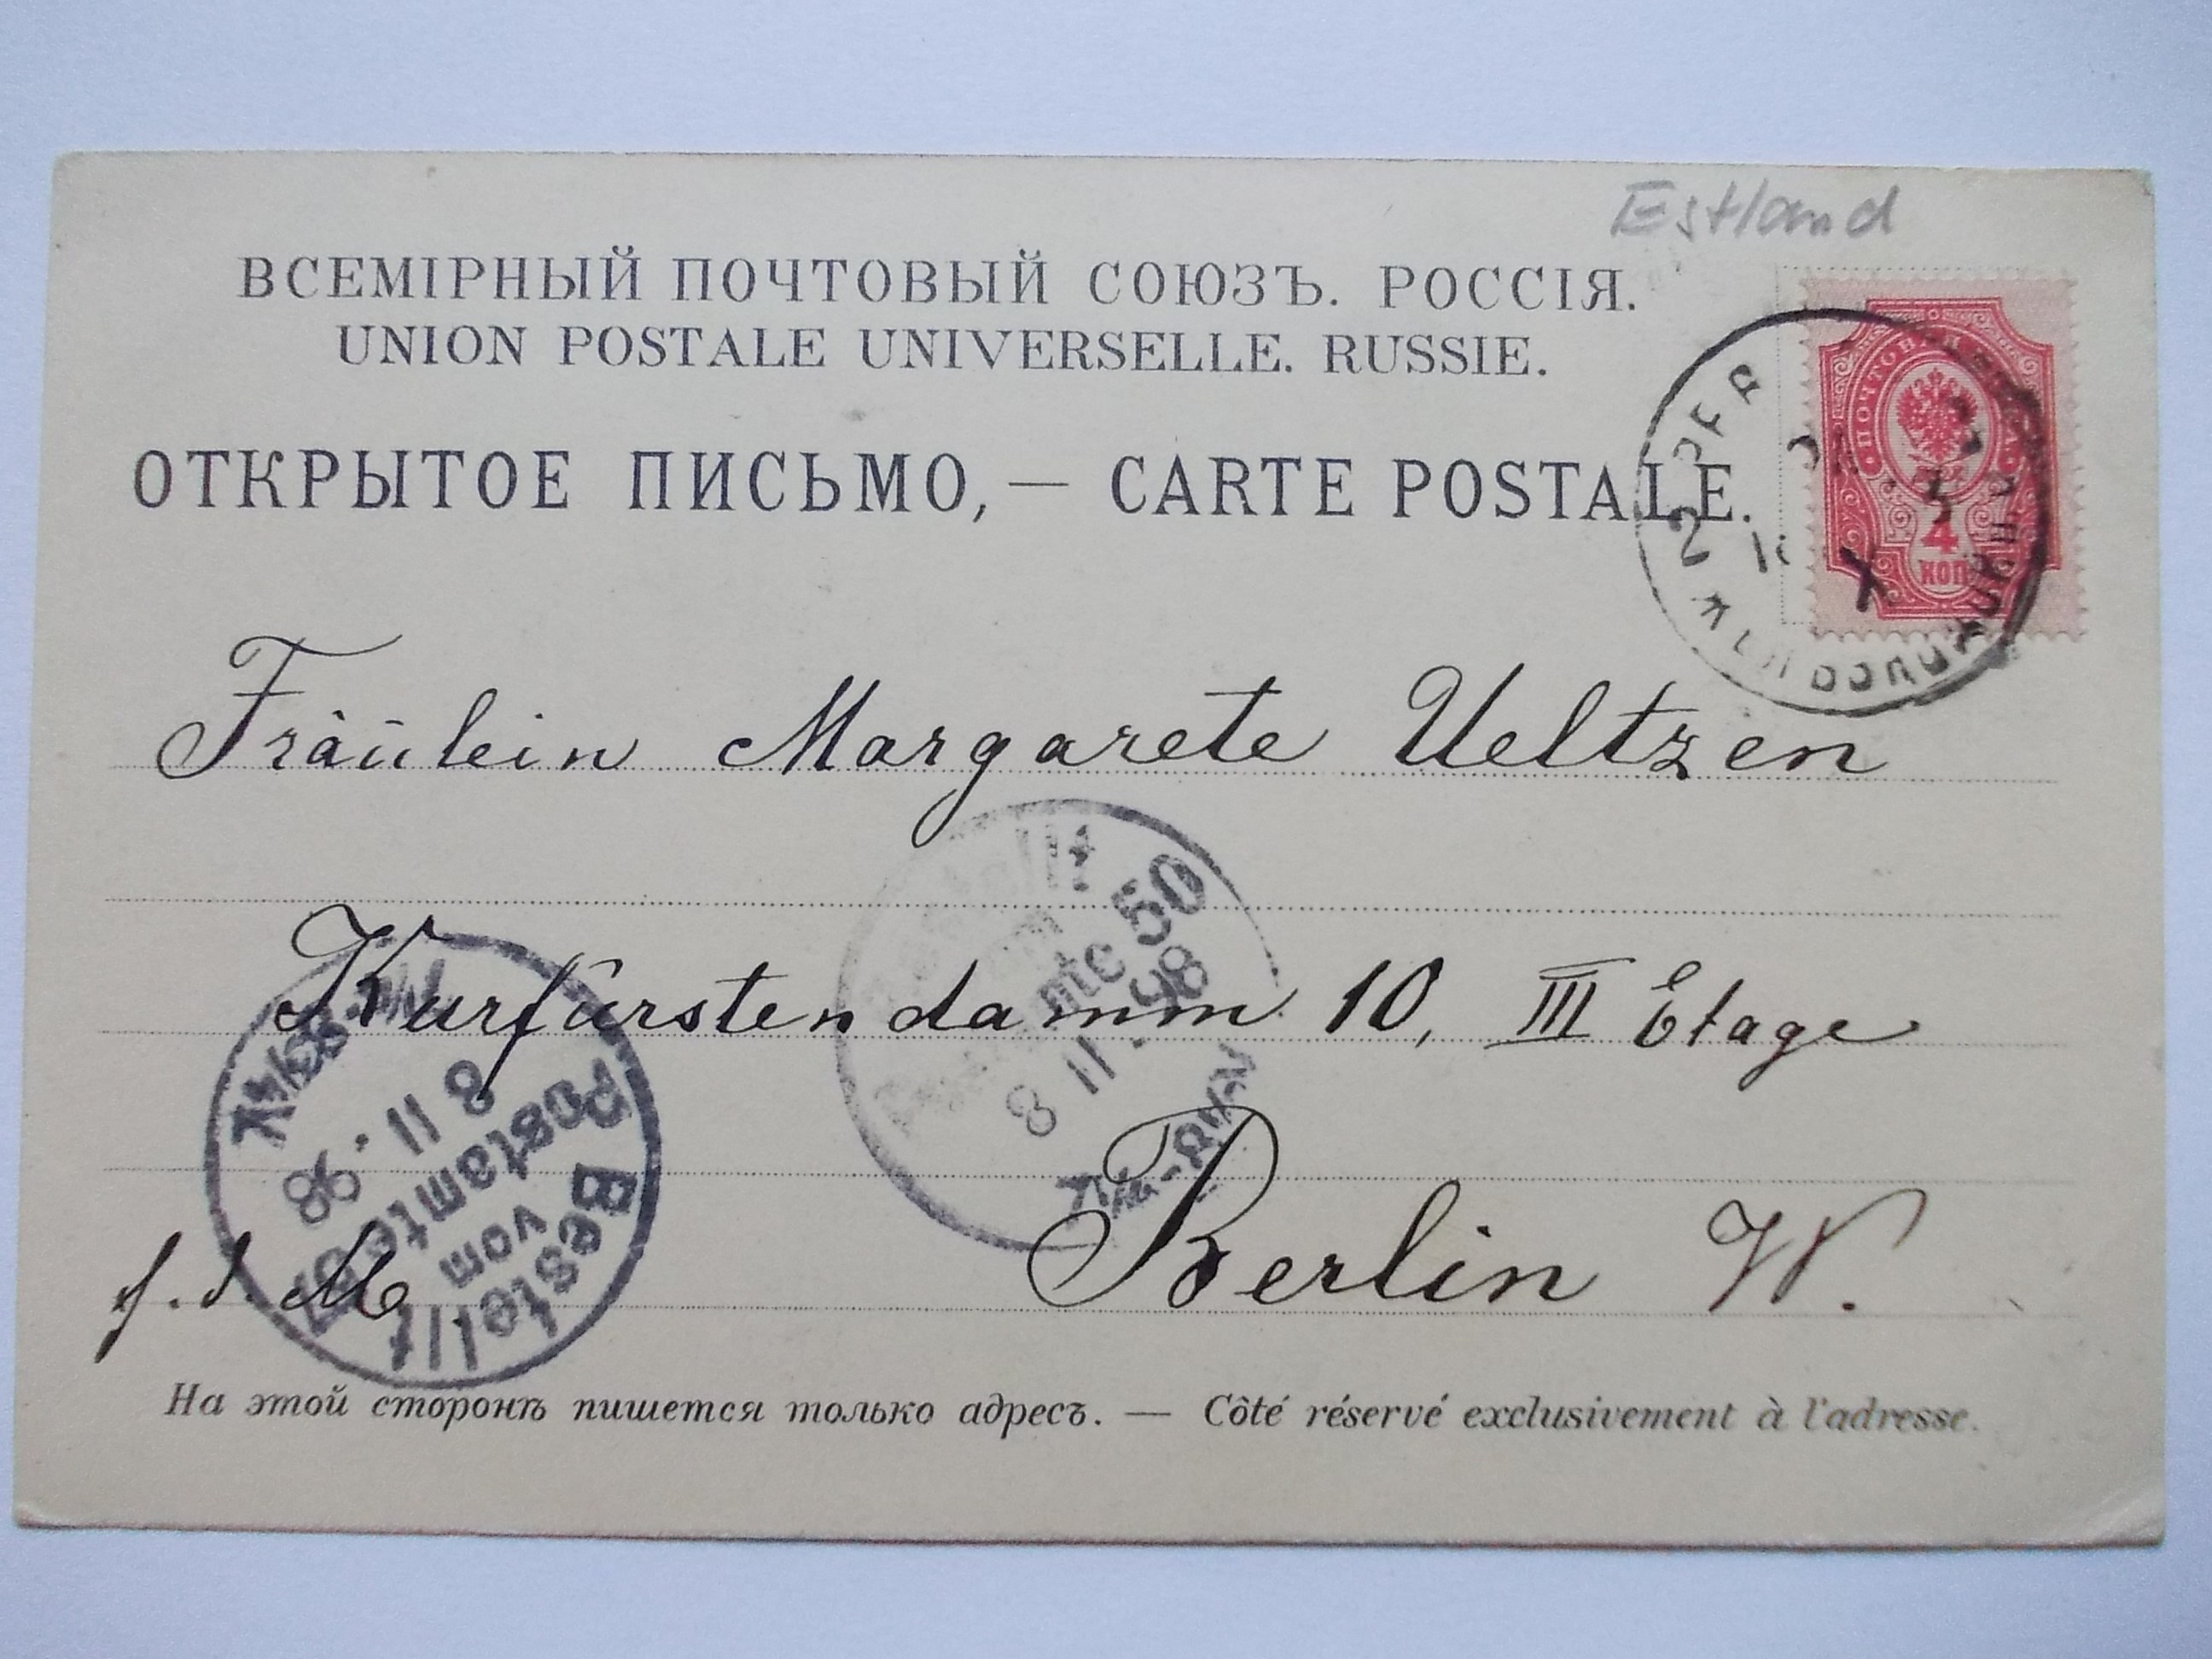 Estland
ВСЕМІРНЫЙ ПОЧТОВЫЙ СОЮЗЪ. РОССІЯ.
UNION POSTALE UNIVERSELLE. RUSSIE.
ОТКРЫТОЕ ПИСЬМО, — CARTE POSTALE.
4
КОП
Fräulein Margarete Ueltzen
Kurfürstendamm 10, III Etage
Berlin W.
50
8 11 . 98
Bestellt
vom
Postamte 57
8 11 . 98
f. d. M
На этой сторонѣ пишется только адресъ. — Côté réservé exclusivement à l'adresse.